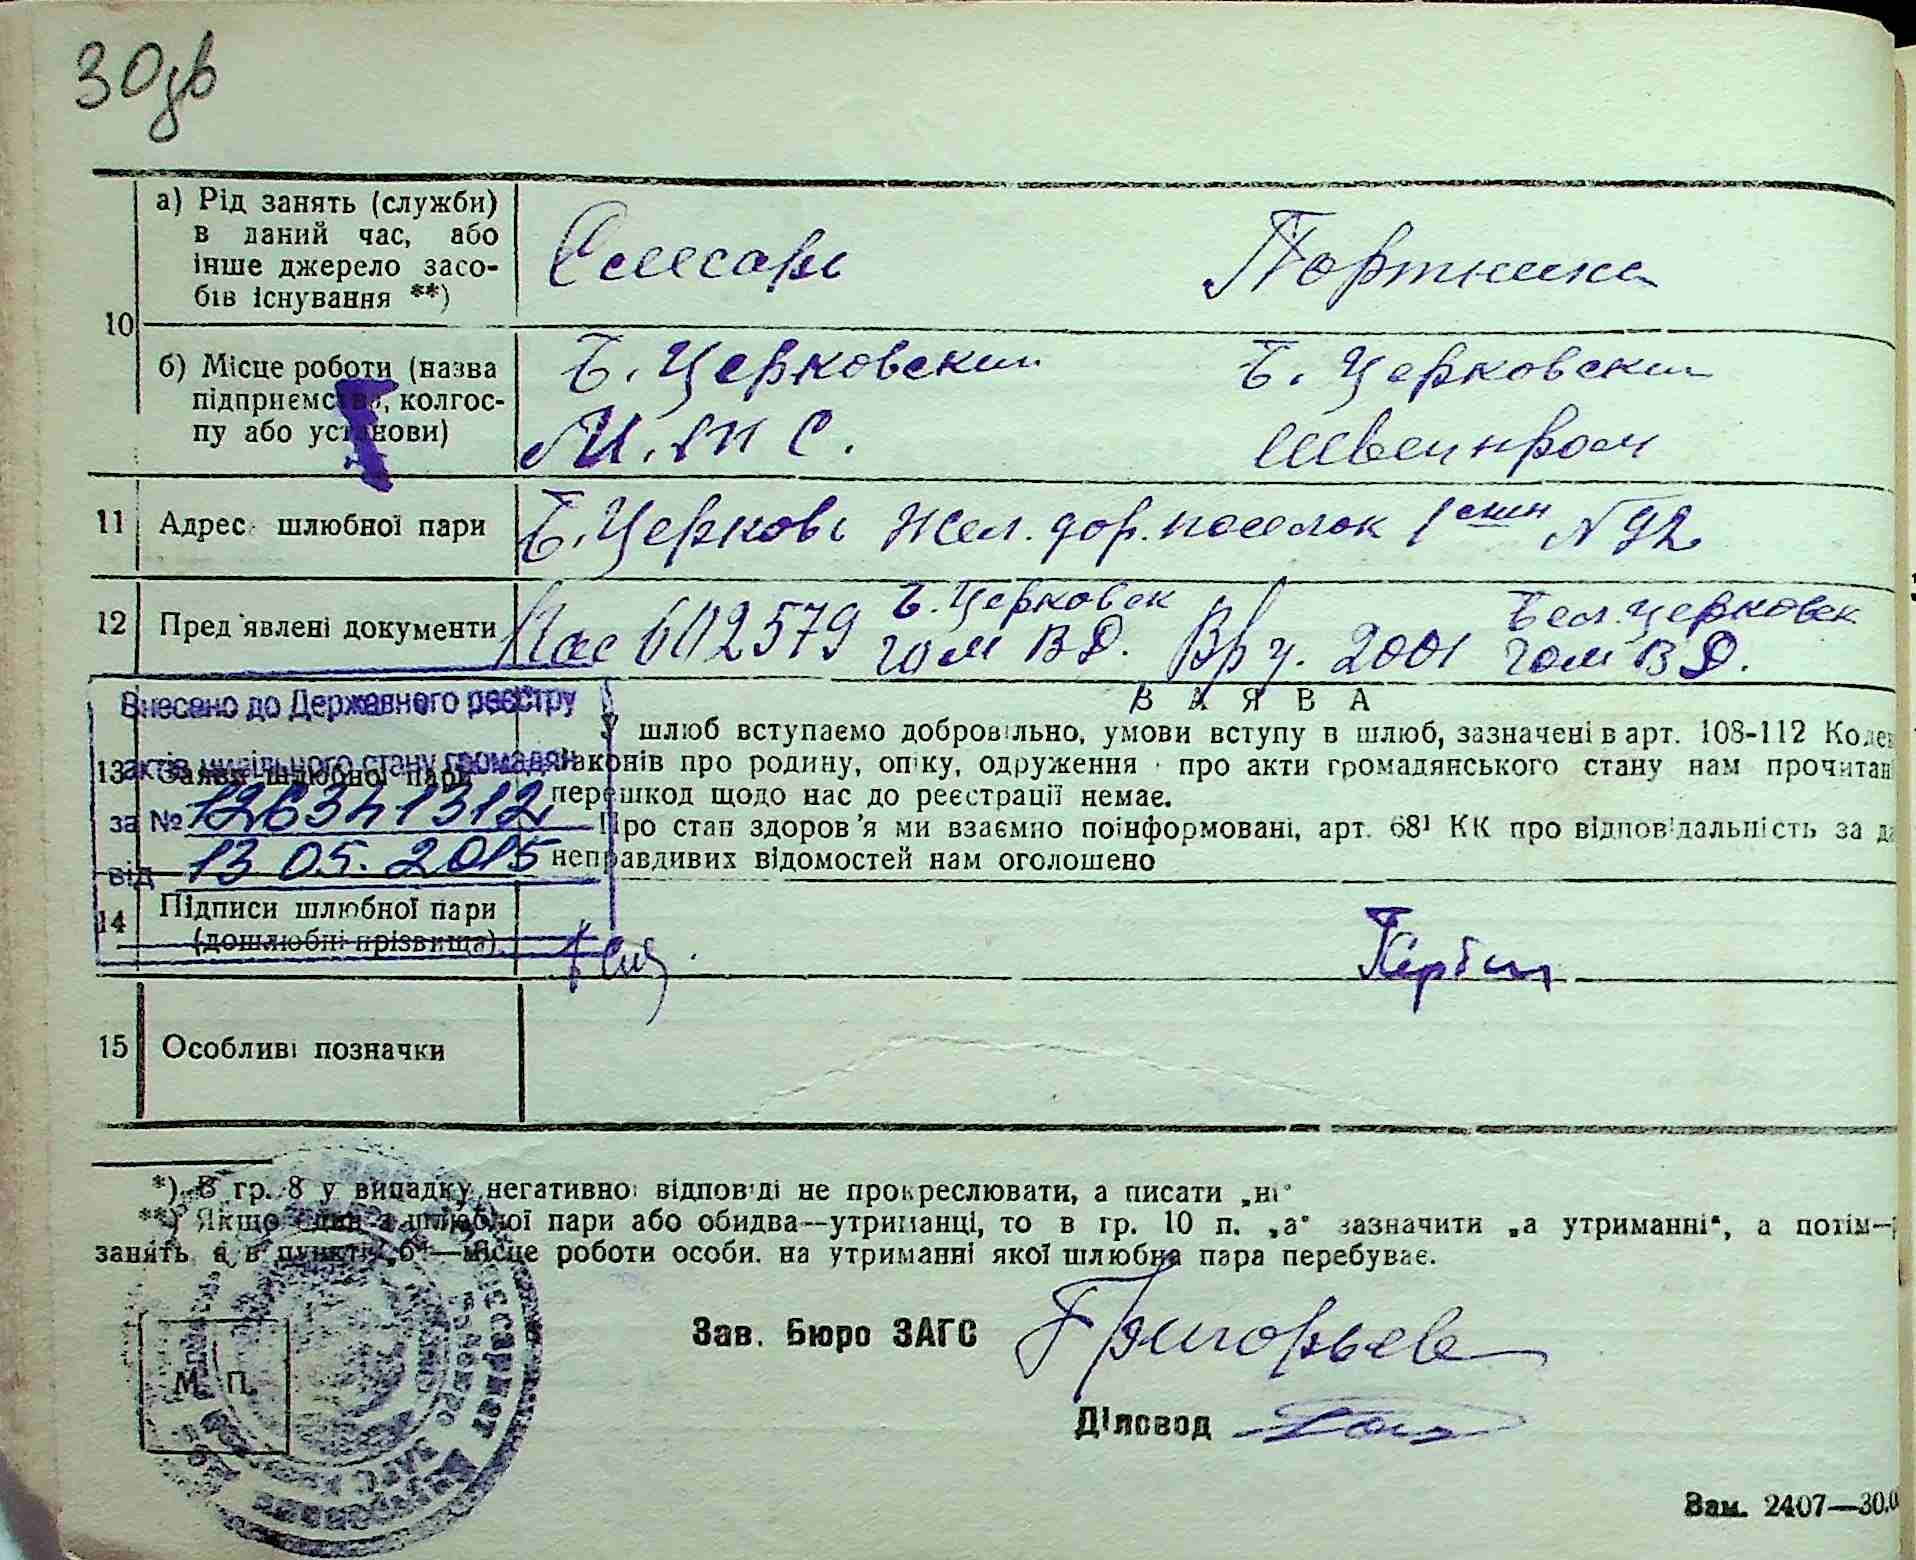 30зв
а) Рід занять (служби)
в даний час, або
інше джерело засо-
бів існування **)
Слесарь
Портниха
10
б) Місце роботи (назва
підприємства, колгос-
пу або установи)
Б. Церковский
М.Т.С.
Б. Церковский
Швейпром
11 Адрес шлюбної пари
Б. Церковь Жел. дор. поселок № 92
12 Пред'явлені документи
Пас 602579 Б. Церковск
гом ВД.
Вр у. 2001 Бел. Церковск
гом ВД.
Внесено до Державного реєстру
актів цивільного стану громадян
за № 126341312
від 13 05. 2015
13 Заява шлюбної пари
ЗАЯВА
У шлюб вступаємо добровільно, умови вступу в шлюб, зазначені в арт. 108-112
законів про родину, опіку, одруження про акти громадянського стану нам
перешкод щодо нас до реєстрації немає.
Про стан здоров'я ми взаємно поінформовані, арт. 68¹ КК про відповідальність за
неправдивих відомостей нам оголошено
14 Підписи шлюбної пари
(дошлюбні прізвища)
15 Особливі позначки
*) В гр. 8 у випадку негативної відповіді не прокреслювати, а писати „ні"
**) Якщо один з шлюбної пари або обидва—утриманці, то в гр. 10 п. „а" зазначити „а утриманні", а потім—
занять, а в пункті „б"—місце роботи особи, на утриманні якої шлюбна пара перебуває.
Зав. Бюро ЗАГС Григорьева
Діловод
М. П.
Зам. 2407—30.